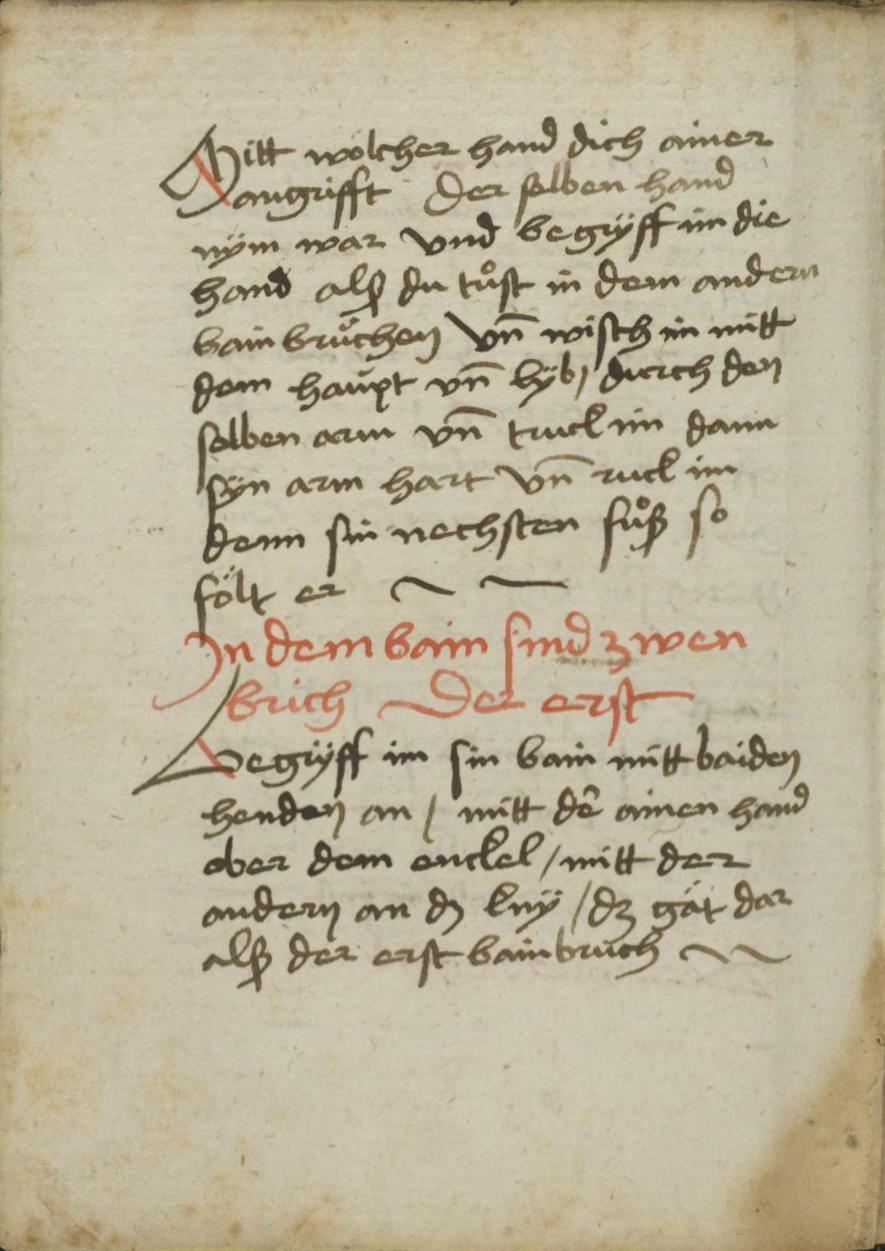 Mitt wölcher hand dich ainer
angrifft Der selben hand
nÿm war vnd begrÿff im die
hand alß du tu̇ͦst in dem andern
bainbrüchen vn̄ wisch im mitt
dem haupt vn̄ lÿb / durch den
selben arm vn̄ truck im dann
sÿn arm hart vn̄ ruck im
denn sin nechsten fůß so
fölt er
In dem bain sind zwen
brich Der erst
Begrÿff im sin bain mitt baiden
henden an / mitt der̄ ainen hand
ober dem enckel / mitt der
andern an dz knÿ / dz gät dar
alß der erst bainbruch